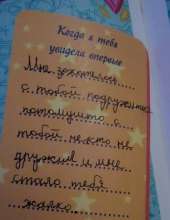 Когда я тебя
увидела впервые
Мне захотелось
с тобой подружиться
потомушто с
тобой некто не
дружил и мне
стало тебя
жалко